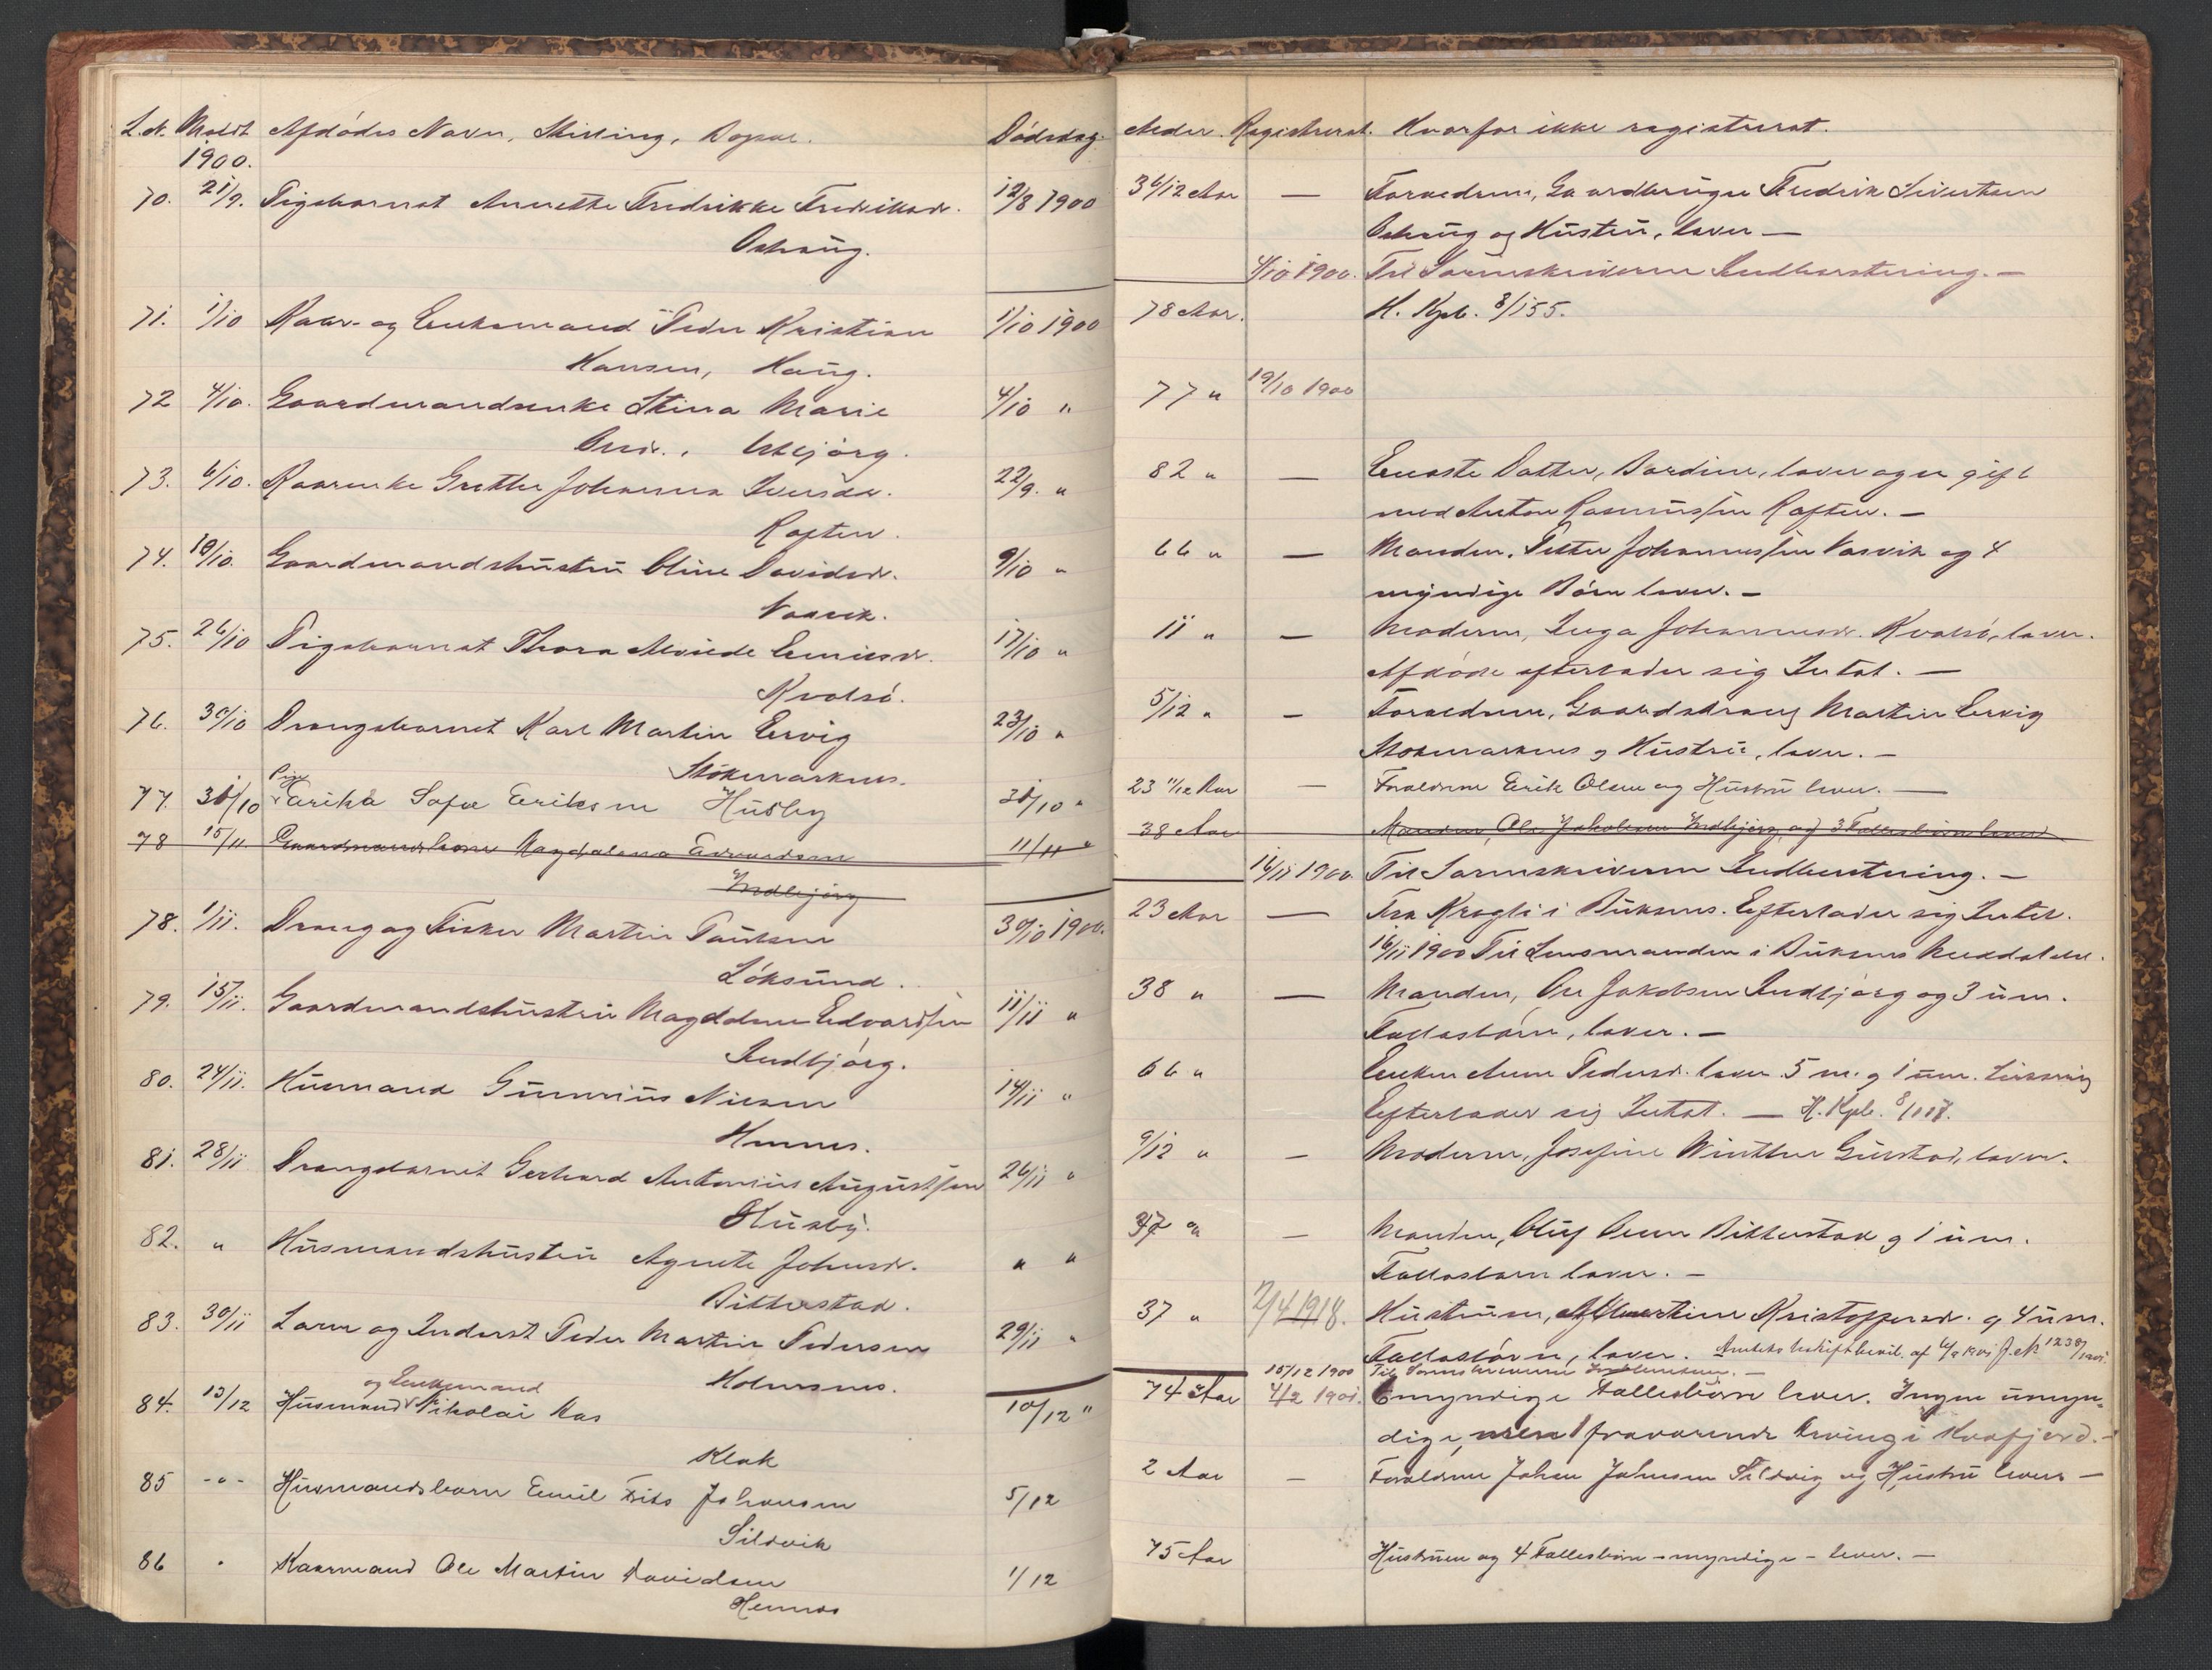 L.N. Meldt Afdødes Navn, Stilling, Bopæl. Dødsdag.
1900.
70. 21/9. Pigebarnet Annette Fredrikke Fredriksdr. 12/8 1900
Oshaug.
71. 1/10 Kaar- og Enkemand Peder Kristian 1/10 1900
Hansen, Haug.
72 4/10. Gaardmandsenke Stina Marie 4/10 "
73. 6/10. Kaarenke Grethe Johanna Iversdr. 22/9. "
Raften.
74. 10/10. Gaardmandshustru Oline Davidsdr. 9/10 "
Vasvik.
75. 26/10 Pigebarnet Thora Alvilde 17/10 "
Kvalsø.
76. 30/10 Drengebarnet Karl Martin Ervig 23/10 "
Stokmarknes.
Pige
77. 31/10 Erika Sofie Eriksen Husby 31/10 "
78 15/11 Gaardmandskone Magdalena Edvardsen 11/11 "
Indbjørg
78. 1/11. Dreng og Fisker Martin Paulsen 30/10 1900.
Løksund.
79. 15/11. Gaardmandshustru Magdalena Edvardsen 11/11 "
Indbjørg.
80. 24/11. Husmand Gunnerius Nilsen 14/11 "
Hennes.
81. 28/11 Drengebarnet Gerhard Antonius Augustsen 26/11 "
Husby.
82. " Husmandshustru Agnete Johnsdr. " "
Bitterstad.
83. 30/11 Larer og Inderst Peder Martin Pedersen 29/11 "
Holmsnes.
og Enkemand
84. 13/12 Husmand Nikolai Aas 10/12 "
Klak
85 -"- Husmandsbarn Emil Fritz Johansen 5/12
Sildvik
86 " Kaarmand Ole Martin Davidsen 1/12
Hennes
Alder. Registreret. Hvorfor ikke registreret.
3 6/12 Aar — Forældrene, Gaardbruger Fredrik Sivertsen
Oshaug og Hustru, lever —
4/10 1900. Til Sorenskriveren Indberetning. —
78 Aar. H. Kpb. 8/155.
77 " 19/10 1900
82 " — Eneste Datter, Bardine, lever og er gift
med Anton Rasmussen Raften. —
66 " — Manden, Petter Johannessen Vasvik og 4
myndige Børn lever. —
11 " — Moderen, Inga Johannesdr. Kvalsø, lever.
Afdøde efterlader sig Intet. —
5/12 " — Forældrene, Gaardsdreng Martin Ervig
Stokmarknes og Hustru, lever. —
23 11/12 Aar — Forældrene Erik Olsen og Hustru lever. —
38 Aar Manden, Ole Jakobsen Indbjørg og 3 Fællesbørn lever
16/11 1900. Til Sorenskriveren Indberetning. —
23 Aar — Fra Kragli i Buksnes. Efterlader sig Intet.
16/11 1900 Til Lensmanden i Buksnes Meddelelse.
38 " — Manden, Ole Jakobsen Indbjørg og 3 um.
Fællesbørn, lever. —
66 " Enken Anne Pedersdr. lever. 5 m. og 1 um.
Efterlader sig Intet. — H. Kpb. 8/117.
9/12 " — Moderen, Josefine Winther Guvstad, lever.
37 " — Manden, Oluf Bitterstad og 1 um.
Fællesbarn lever. —
37 " 2/4 1918. Hustruen, Martine Kristoffersdr. og 4 um.
Fællesbørn, lever.
15/12 1900 Til Sorenskriveren Indberetning. —
74 Aar 4/2 1901. 6 myndige Fællesbørn lever. Ingen umyn-
dige, men 1 fraværende Arving i Kvæfjord. —
2 Aar — Forældrene Johan Johnsen Sildvig og Hustru lever —
75 Aar Hustruen og 4 Fællesbørn - myndige - lever. —